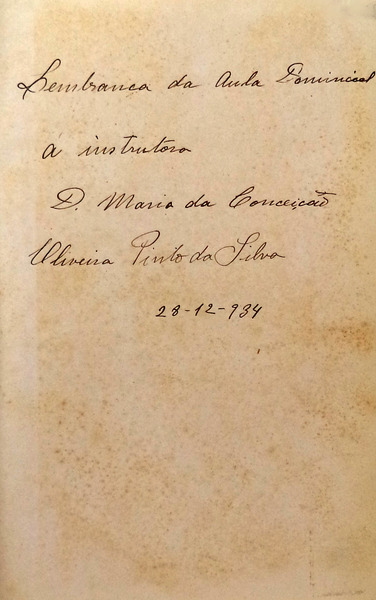 Lembrança da Aula Dominical
a instrutora
D. Maria da Conceição
Oliveira Pinto da Silva
28-12-934